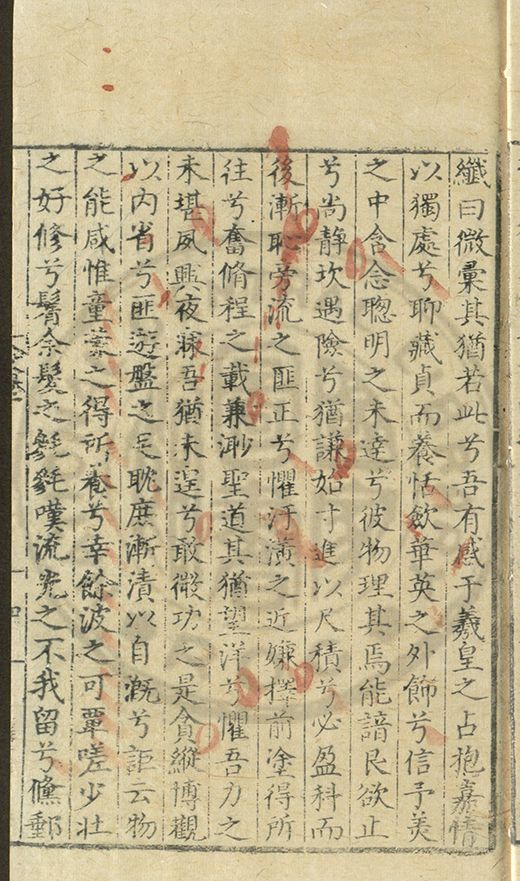 纖曰微彙其猶若此兮吾有感于羲皇之占抱嘉情
以獨處兮聊藏貞而養恬歛華英之外飾兮信予美
之中含念聦明之未逹兮彼物理其焉能諳艮欲止
兮尚静坎遇險兮猶謙始寸進以尺積兮必盈科而
後漸恥旁流之匪正兮懼汙潢之近嫌擇前塗得所
往兮奮脩程之載兼渺聖道其猶望洋兮懼吾力之
未堪夙興夜寐吾猶未遑兮敢微功之是貪縱博觀
以内省兮匪遊盤之足耽庶漸漬以自漑兮詎云物
之能咸惟童蒙之得所養兮幸餘波之可覃嗟少壯
之好修兮鬢余髮之毿毿嘆流光之不我留兮儵郵
十四